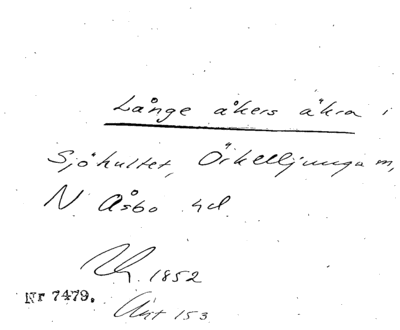 Långe åkers åkra i
Sjöhultet, Örkelljunga m,
N Åsbo hd.
1852
Nr 7479.
Akt 153